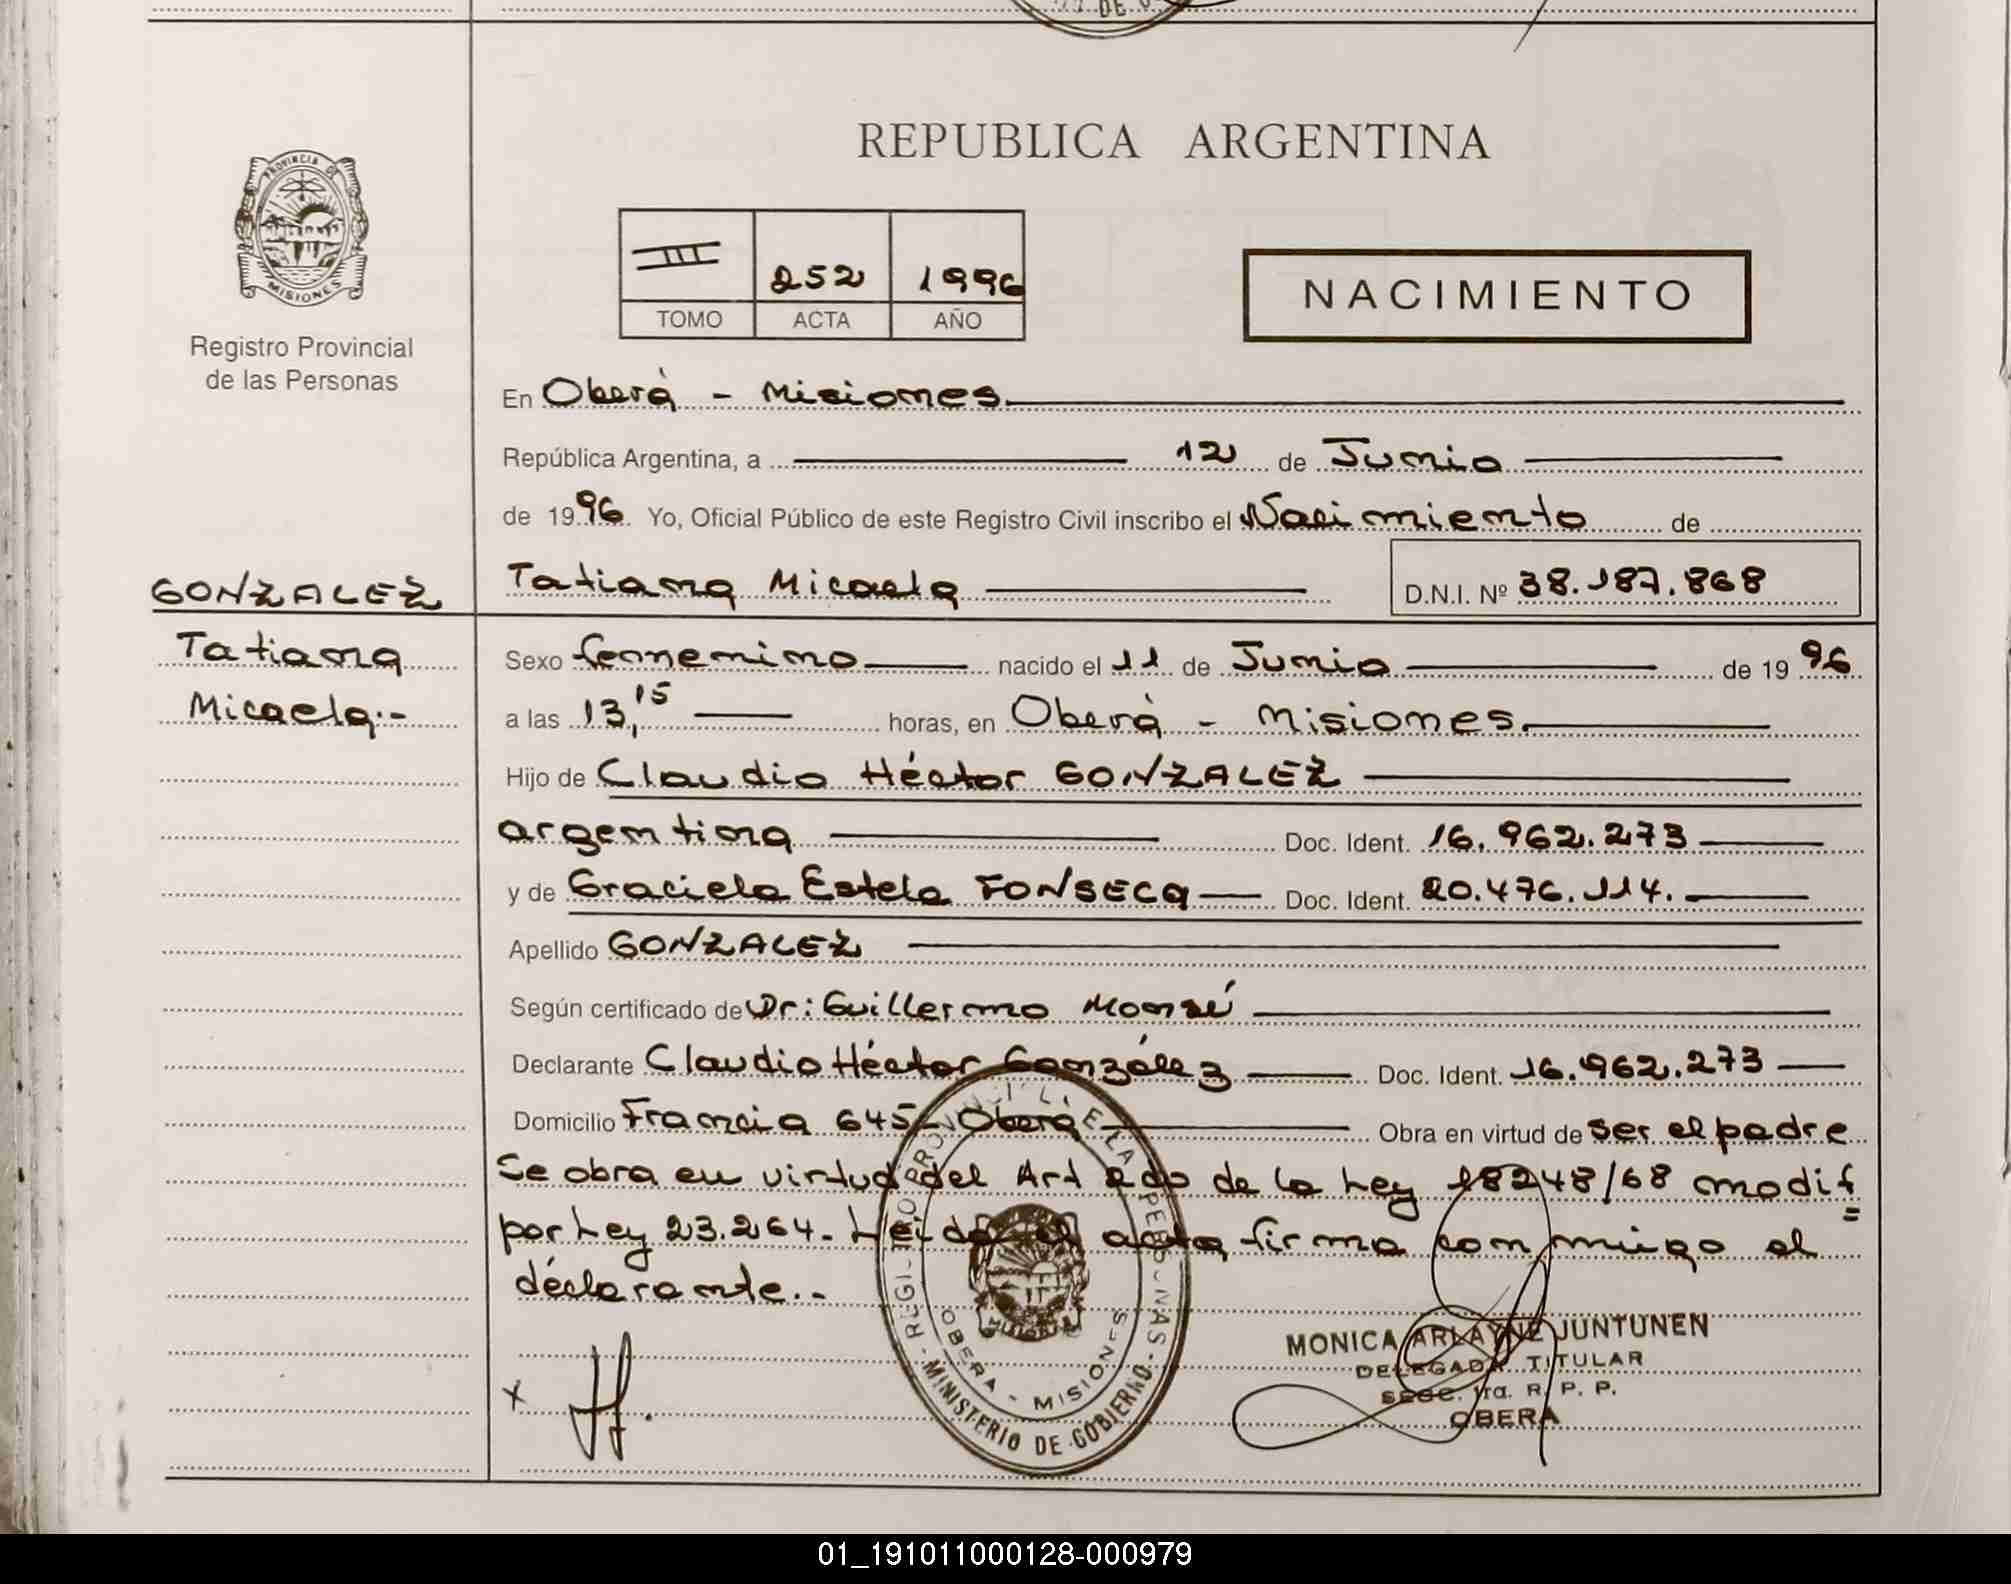 REPUBLICA ARGENTINA
PROVINCIA DE
MISIONES
Registro Provincial
de las Personas
III 252 1996
TOMO ACTA AÑO
NACIMIENTO
En Oberá - Misiones
República Argentina, a 12 de Junio
de 1996 Yo, Oficial Público de este Registro Civil inscribo el Nacimiento de
GONZALEZ
Tatiana Micaela D.N.I. Nº 38.187.868
Tatiana
Micaela.-
Sexo femenino nacido el 11 de Junio de 1996
a las 13,15 horas, en Oberá - Misiones.
Hijo de Claudio Héctor GONZALEZ
argentina Doc. Ident. 16.962.273
y de Graciela Estela FONSECA Doc. Ident. 20.476.114.
Apellido GONZALEZ
Según certificado de Dr: Guillermo
Declarante Claudio Héctor González Doc. Ident. 16.962.273
Domicilio Francia 645 - Oberá Obra en virtud de ser el padre
Se obra en virtud del Art 2do de la Ley 18248/68 modif
por Ley 23.264.- Leida el acta firma conmigo el
declarante.-
REGISTRO PROVINCIAL DE LAS PERSONAS
OBERA - MISIONES
MINISTERIO DE GOBIERNO
MONICA ARLAYNE JUNTUNEN
DELEGADA TITULAR
SECC. 1ra. R. P. P.
OBERA
01_191011000128-000979